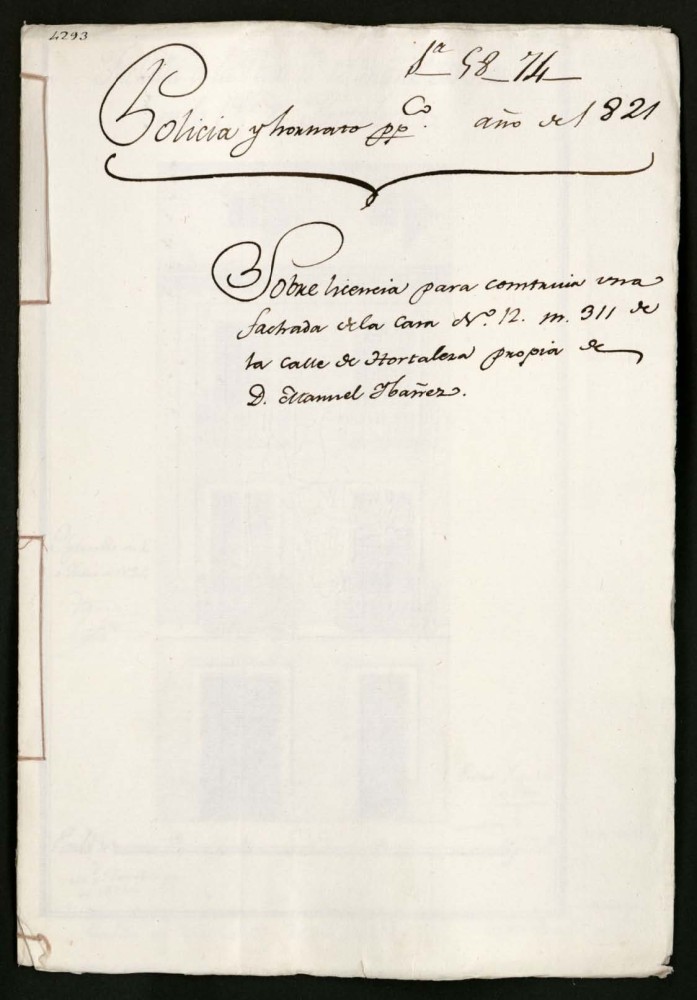 4293
1ª 58-74
Policia y hornato ppCo. año de 1821
Sobre licencia para construir una
fachada de la Casa Nº. 12. m. 311 de
la Calle de Hortaleza propia de
D. Manuel Ybañez.